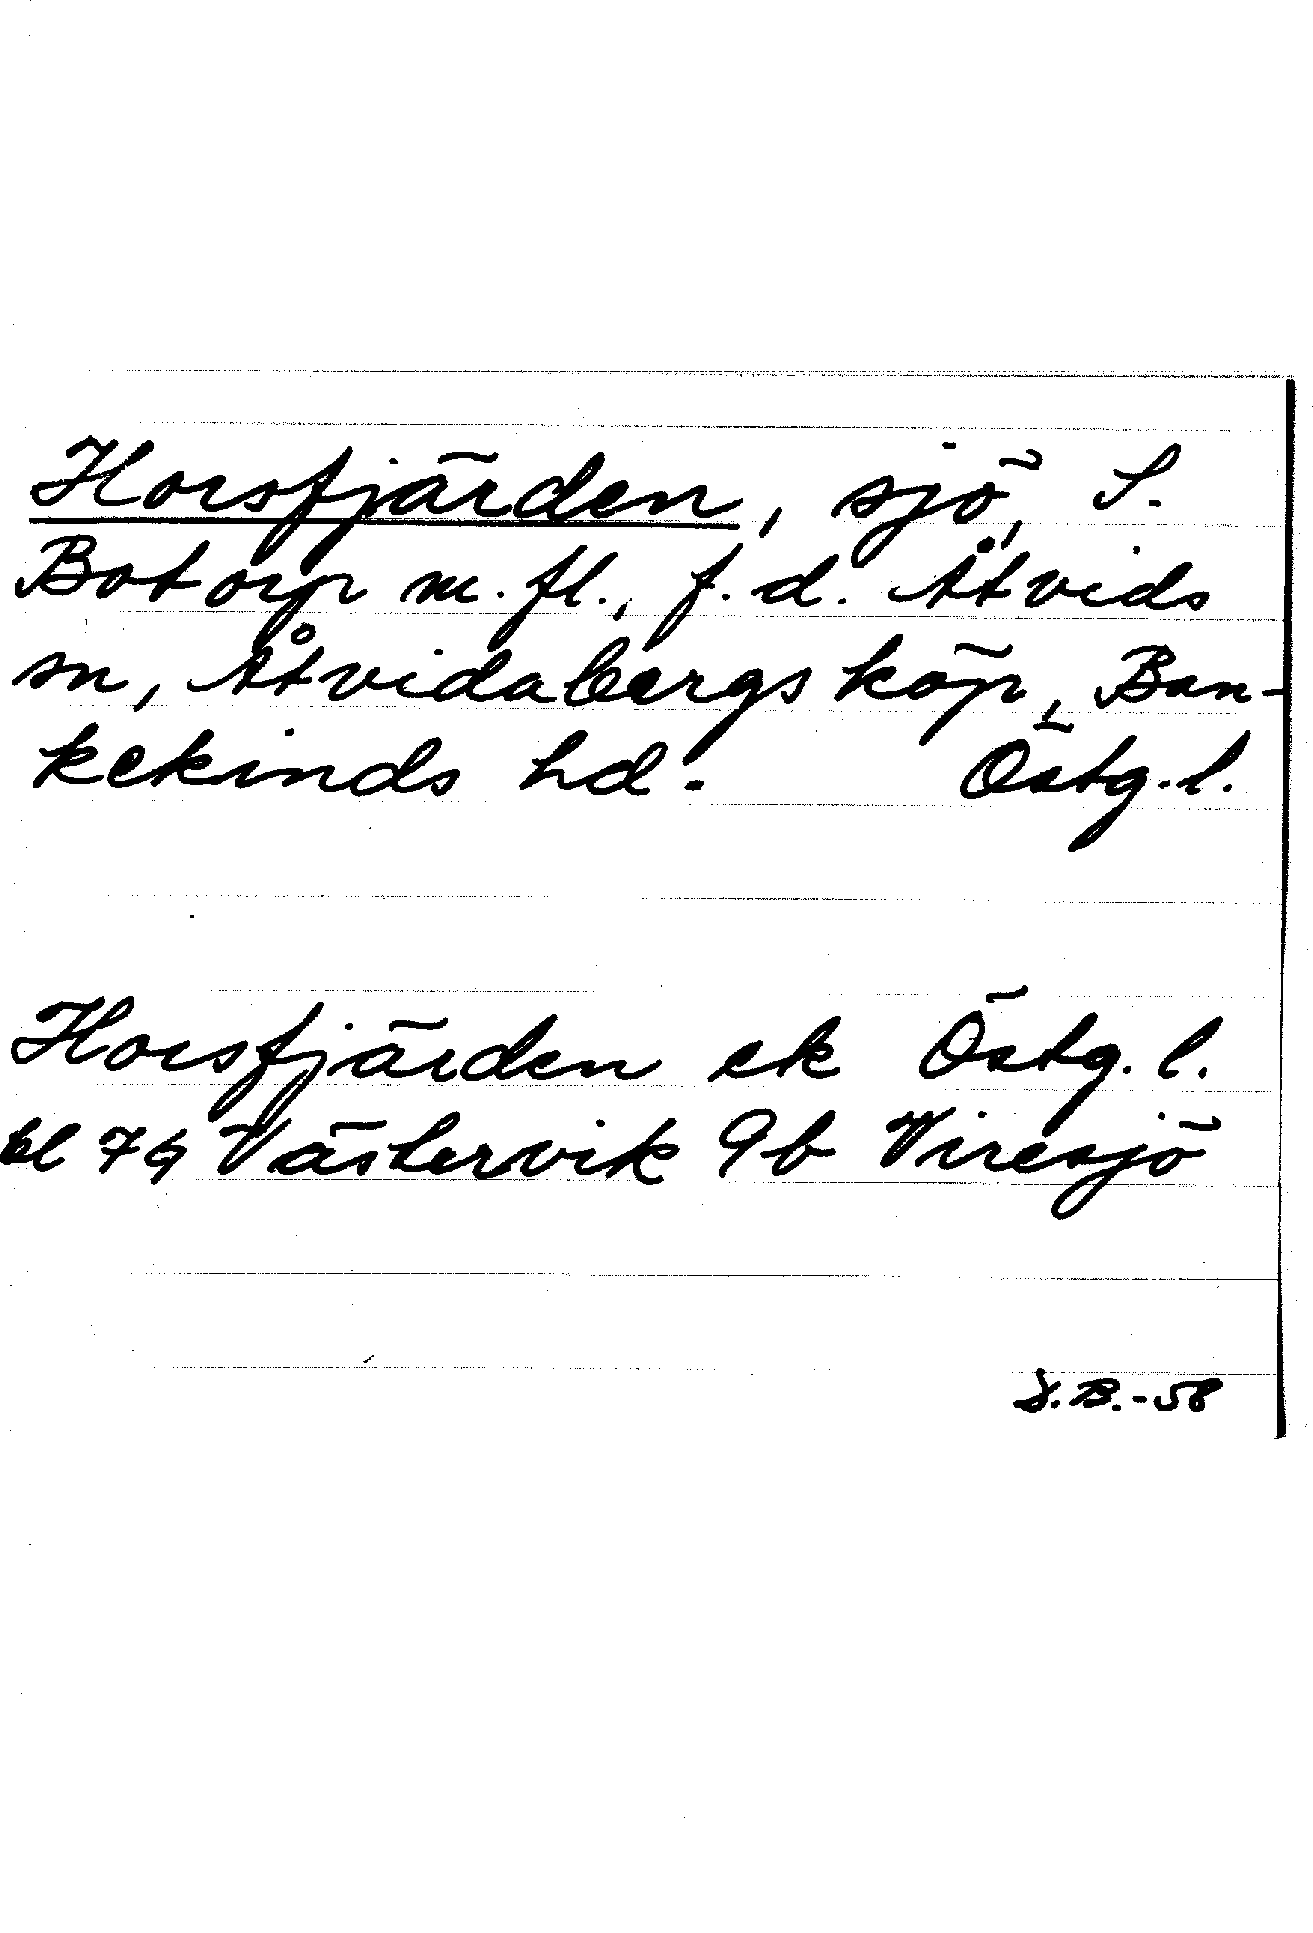 Horsfjärden, sjö, S.
Botorp m.fl., f.d. Åtvids
sn, Åtvidabergs köp, Ban-
kekinds hd. Östg.l.
Horsfjärden ek Östg.l.
bl 79 Västervik 9b Viresjö
S.B.-58